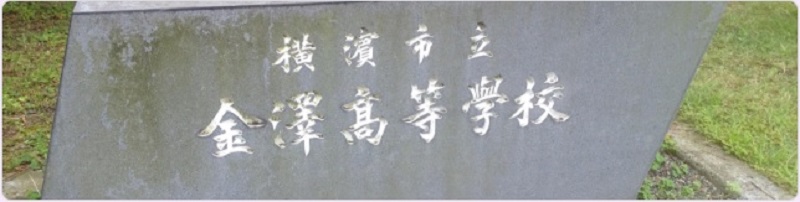 横濱市立
金澤髙等學校